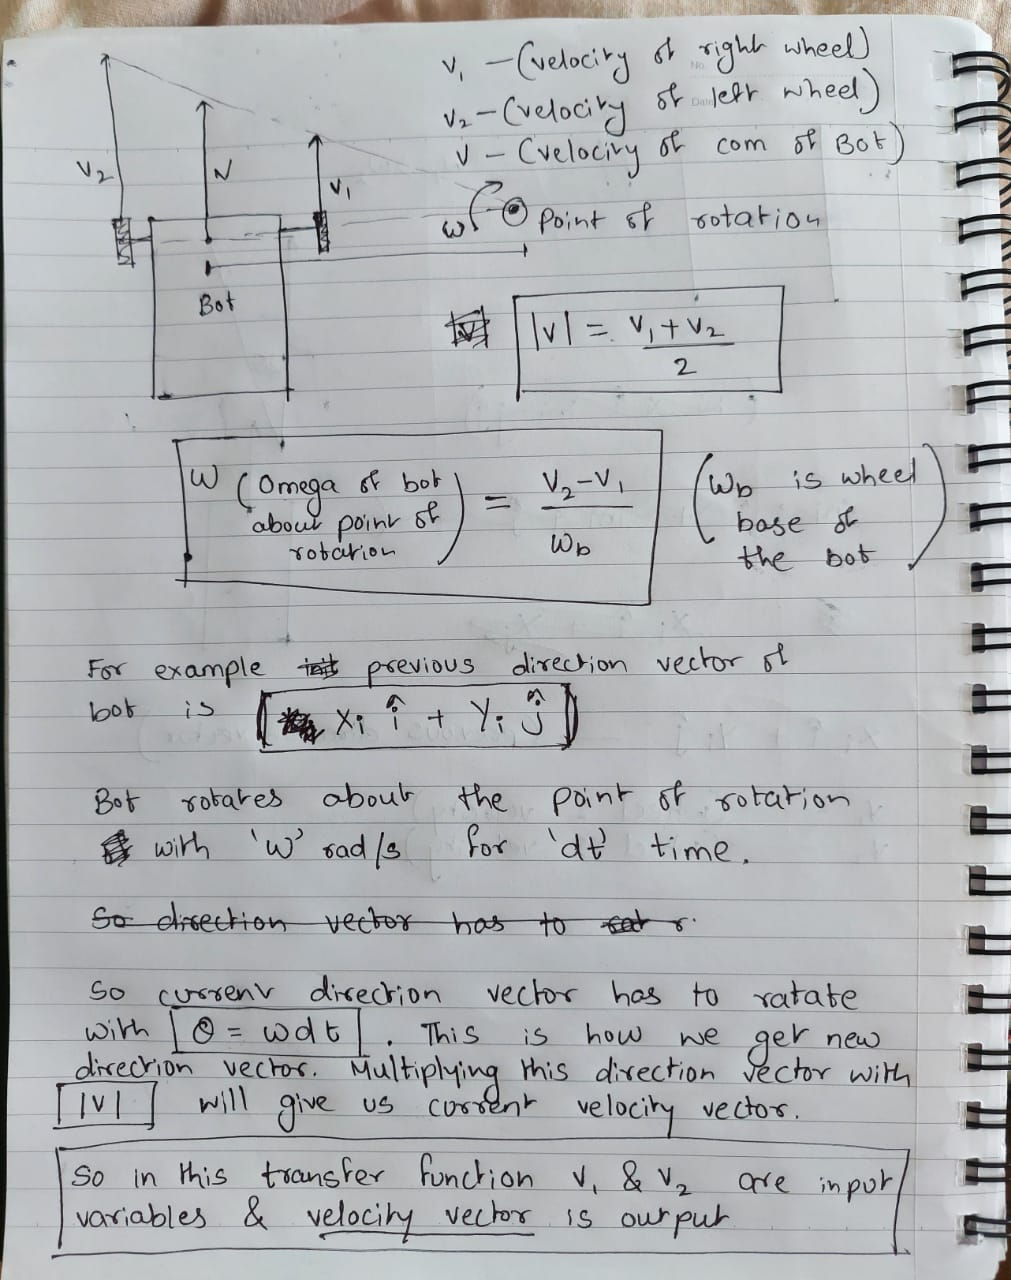 V₁ – (velocity of right wheel)
V₂ – (velocity of left wheel)
V – (velocity of com of Bot)
V₂
V
V₁
ω
Point of rotation
Bot
|V| = (V₁ + V₂) / 2
W (Omega of bot about point of rotation) = (V₂ - V₁) / Wb
(Wb is wheel
base of
the bot)
For example previous direction vector of
bot is [Xi î + Yi ĵ]
Bot rotates about the point of rotation
with 'w' rad/s for 'dt' time.
So direction vector has to
So current direction vector has to ratate
with [θ = wdt]. This is how we get new
direction vector. Multiplying this direction vector with
[|V|] will give us current velocity vector.
So in this transfer function V₁ & V₂ are input
variables & velocity vector is output